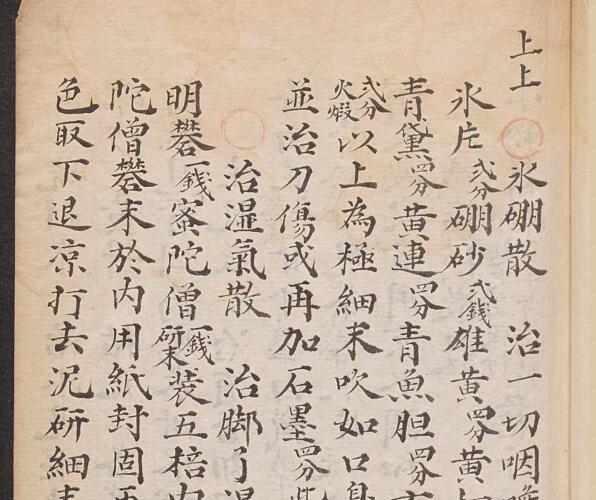 上上
氷硼散 治一切咽
氷片弍分硼砂弍錢雄黃四分黃
青黛四分黃連四分青魚胆四分
弍分火煅以上為極細末吹如口
並治刀傷或再加石墨四分
治濕氣散 治脚了
明礬一錢蜜陀僧一錢研末装五棓
陀僧礬末於内用紙封固
色取下退凉打去泥研細